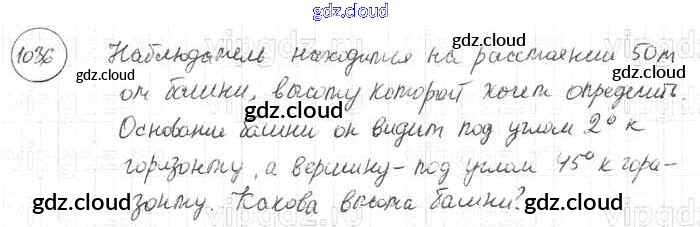 gdz.cloud
1036 Наблюдатель находится на расстоянии 50 м
gdz.cloud gdz.cloud
от башни, высоту которой хочет определить.
gdz.cloud
Основание башни он видит под углом 2° к
gdz.cloud gdz.cloud
горизонту, а вершину - под углом 45° к гори-
gdz.cloud gdz.cloud gdz.cloud
зонту. Какова высота башни?